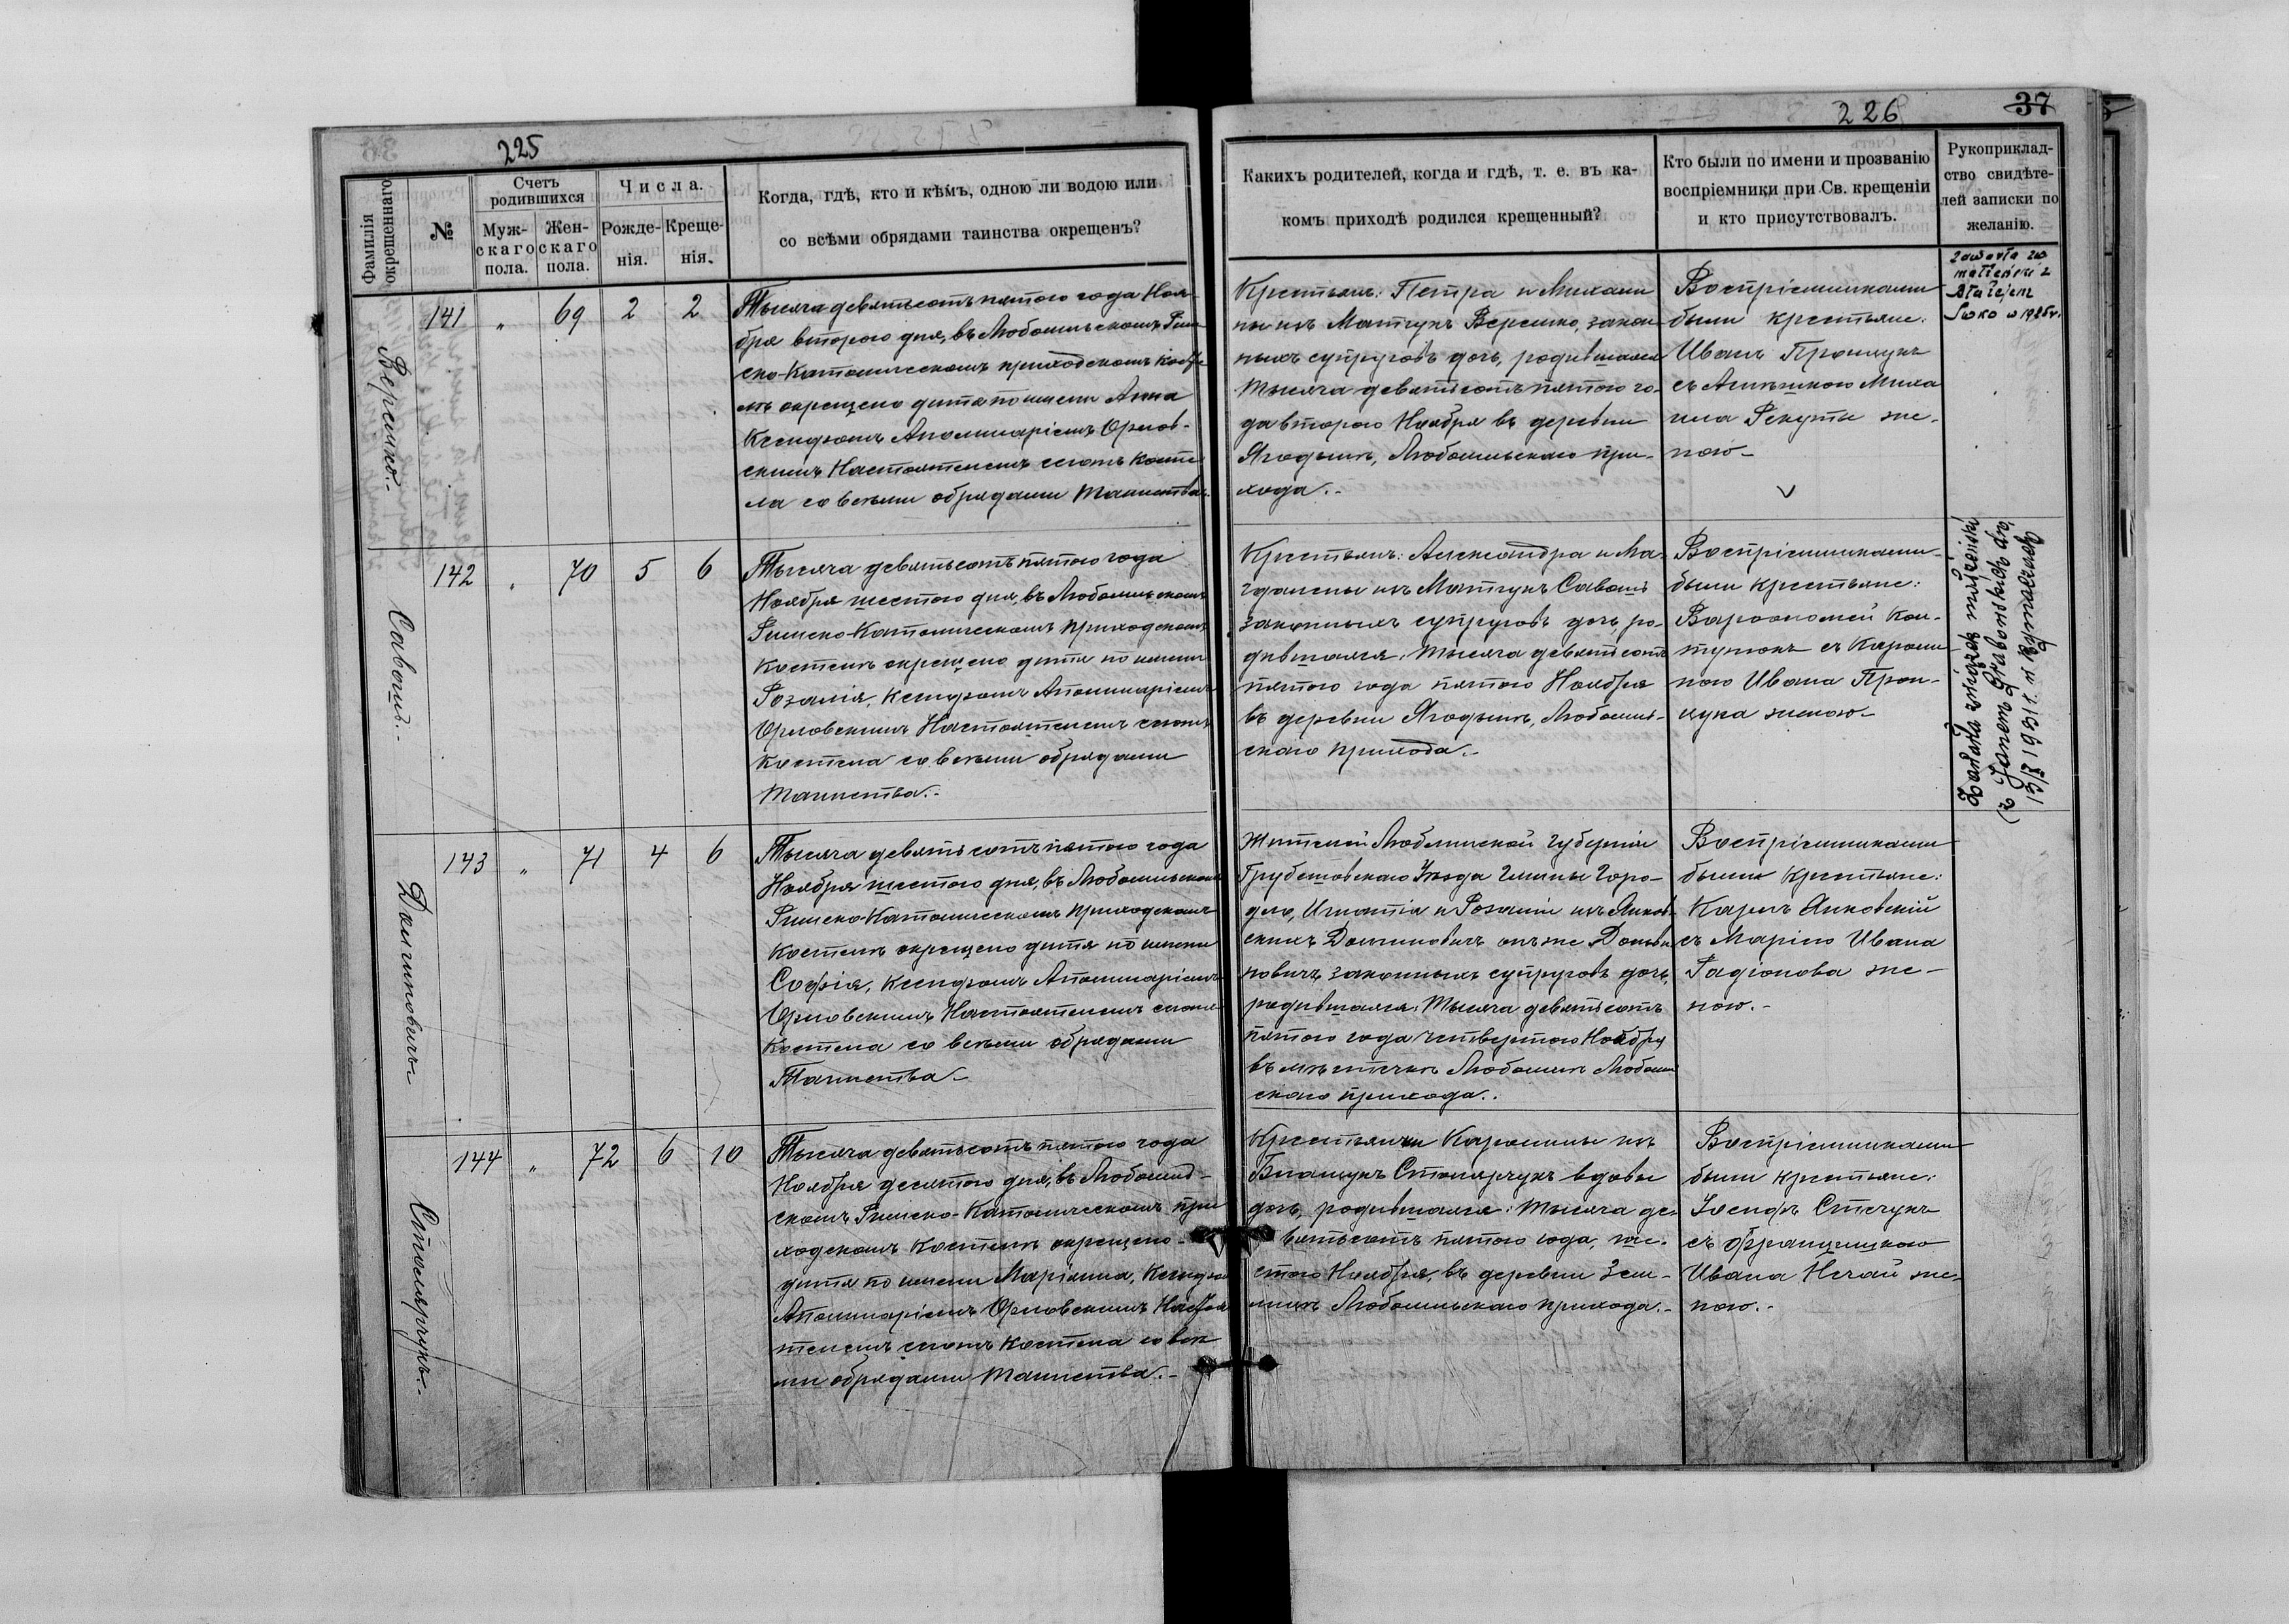 225
Фамилія окрещеннаго
№
Счетъ родившихся
Мужскаго пола.
Женскаго пола.
Числа.
Рожденія.
Крещенія.
Когда, гдѣ, кто и кѣмъ, одною ли водою или
со всѣми обрядами таинства окрещенъ?
Веремко.-
141 " 69 2 2
Тысяча девятьсотъ пятого года Ноя-
бря второго дня, въ Любомльскомъ Рим-
ско-Католическомъ приходскомъ косте-
лѣ окрещено дитя по имени Анна
Ксендзомъ Аполинаріемъ Орлов-
скимъ Настоятелемъ сего костё-
ла со всѣми обрядами Таинства.
Савошъ.-
142 " 70 5 6
Тысяча девятьсотъ пятого года
Ноября шестого дня, въ Любомльскомъ
Римско-Католическомъ приходскомъ
костелѣ окрещено дитя по имени
Розалія, Ксендзомъ Аполинаріемъ
Орловскимъ Настоятелемъ
костела со всѣми обрядами
Таинства.-
Долгиновичъ
143 " 71 4 6
Тысяча девятьсотъ пятого года
Ноября шестого дня, въ Любомльскомъ
Римско-Католическомъ приходскомъ
костелѣ окрещено дитя по имени
Софія, Ксендзомъ Аполинаріемъ
Орловскимъ Настоятелемъ
костела со всѣми обрядами
Таинства-
Столярчукъ.-
144 " 72 6 10
Тысяча девятьсотъ пятого года
Ноября десятого дня, въ Любомль-
скомъ Римско-Католическомъ при
ходскомъ костелѣ окрещено-
дитя по имени Маріанна, Ксендзом
Аполинаріемъ Орловскимъ Настоя
телемъ костела со всѣ
ми обрядами Таинства.-
226
37
Какихъ родителей, когда и гдѣ, т. е. въ ка-
комъ приходѣ родился крещенный?
Кто были по имени и прозванію
воспріемники при Св. крещеніи
и кто присутствовалъ.
Рукоприклад-
ство свидѣте-
лей записки по
желанію.
Крестьянъ: Петра и Михали
ны изъ Матчукъ Веремко, закон-
ныхъ супруговъ дочь, родившаяся
тысяча девятьсотъ пятого го-
да второго Ноября въ деревни
Ягодынѣ, Любомльскаго при-
хода.-
Воспріемниками
были крестьяне:
Иванъ
съ Миха
ила же-
ною-
zawarła zw
małżeński z
w 1925 r.
Крестьянъ: Александра и Ма-
гдалены изъ Матчукъ Савошъ
законныхъ супруговъ дочь, ро-
дившаяся: тысяча девятьсотъ
пятого года пятого Ноября
въ деревни Ягодынѣ, Любомль-
скаго прихода.-
Воспріемниками
были крестьяне:
съ Кароли
ною Ивана
женою-
Zawarła związek małżeński
z Janem Grabowskim dn.
1931 r. w
Жителей Люблинской губерніи
Грубешовскаго Уѣзда Гмины Горо-
дло, Игнатія и Розаліи изъ Янков-
скихъ Долгиновичъ онъ же
новичъ, законныхъ супруговъ дочь,
родившаяся: Тысяча девятьсотъ
пятого года четвертого Ноября
въ мѣстечкѣ Любомлѣ Любомль
скаго прихода..
Воспріемниками
были крестьяне:
Карлъ Янковскій
съ Маріею Ивана
Радіонова же-
ною.-
Крестьянки Каролины изъ
Столярчукъ вдовы
дочь, родившаяся: тысяча де-
вятьсотъ пятого года, ше-
стого Ноября, въ деревни Зем-
лицѣ Любомльскаго прихода.-
Воспріемниками
были крестьяне:
Іосифъ
съ Францишкою
Ивана Нечай же-
ною.-